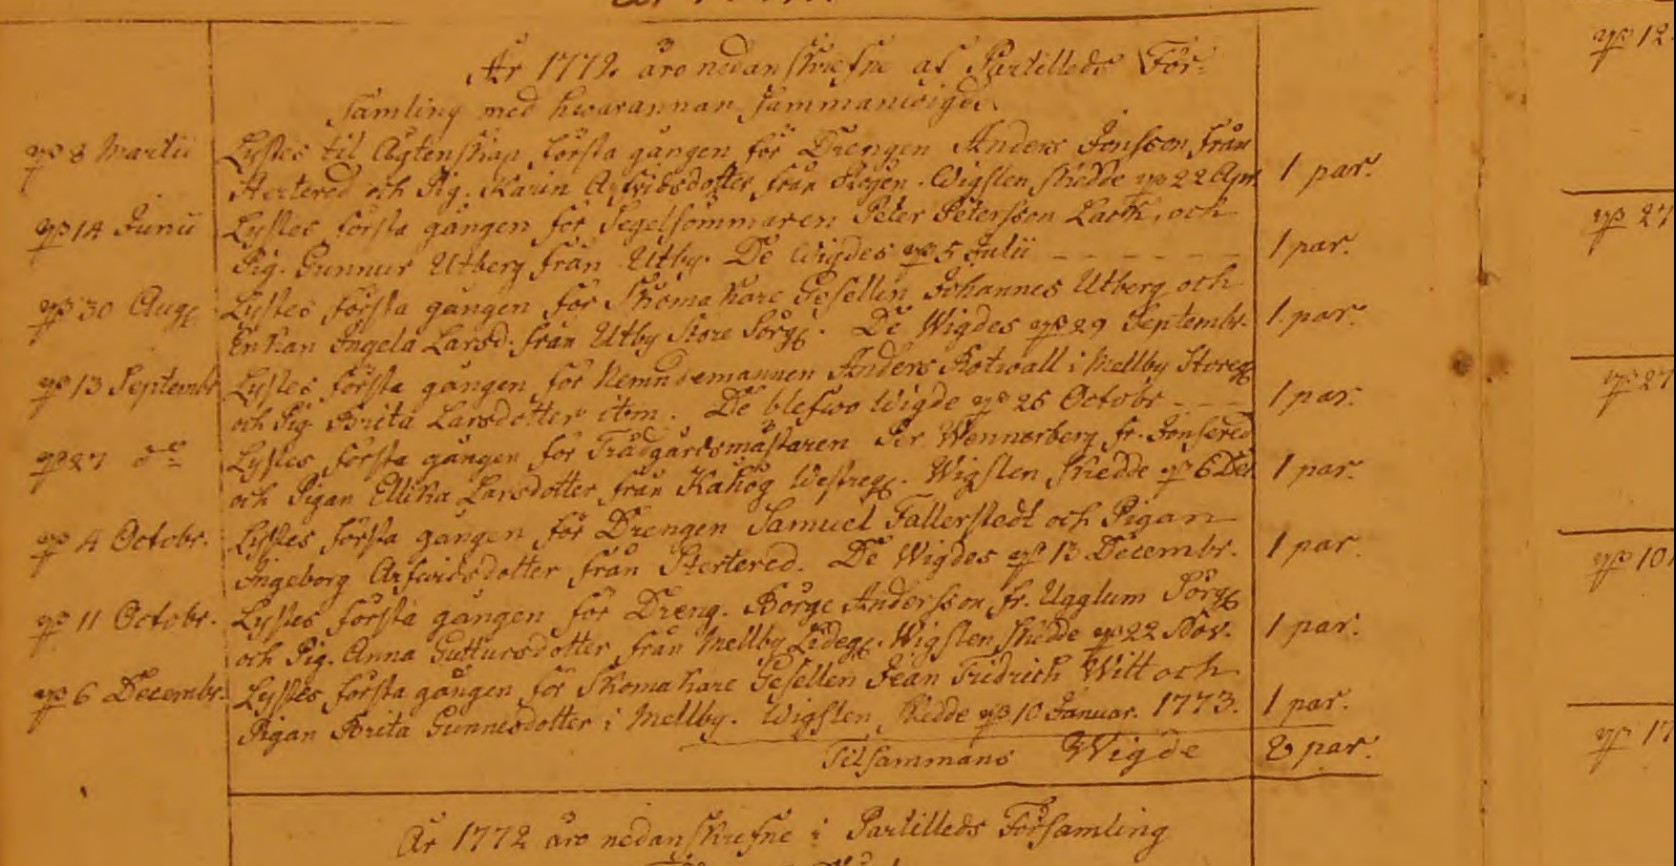 År 1772 äro nedanskrefne af Partilleds För-
samling med hwarannan sammanwigde.
d. 8 Martii Lystes til Ägtenskap första gången för Drengen Anders Jonsson från
Stertered och Pig. Karin Arfvidsdotter från Skogen. Wigslen skedde d. 22 Apr. 1 par.
d. 14 Junii Lystes första gången för Segelsömmaren Peter Petersson Lark, och
Pig. Gunnur Utberg från Utby. De Wigdes d. 5 Julii - - - - - - 1 par.
d. 30 Aug. Lystes första gången för Skomakare Gesellen Johannes Utberg och
Enkan Ingela Larsd. från Utby Store Görg. De Wigdes d. 29 Septembr. 1 par.
d. 13 Septembr Lystes första gången för Nemndemannen Anders Rotwall i Mellby Storeg.
och Pig. Brita Larsdotter item. De blefwo Wigde d. 25 Octobr - - - 1 par.
d. 27 do Lystes första gången för Trädgårdsmästaren Per Wennerberg fr. Jonsered
och Pigan Ellika Larsdotter från Kåhög Westreg. Wigslen skedde d. 6 Dec. 1 par.
d. 4 Octobr. Lystes första gången för Drengen Samuel Fallerstedt och Pigan
Ingeborg Arfwidsdotter från Stertered. De Wigdes d. 13 Decembr. 1 par.
d. 11 Octobr. Lystes första gången för Dreng. Börge Andersson fr. Ugglum Görg.
och Pig. Anna Guttursdotter från Mellby Lideg. Wigslen skedde d. 22 Nov. 1 par.
d. 6 Decembr. Lystes första gången för Skomakare Gesellen Jean Fridrich Witt och
Pigan Brita Gunnesdotter i Mellby. Wigslen skedde d. 10 Januar. 1773. 1 par.
Tilsammans Wigde 8 par.
År 1772 äro nedanskrefne i Partilleds Församling
d. 12
d. 27
d. 27
d. 10
d. 17